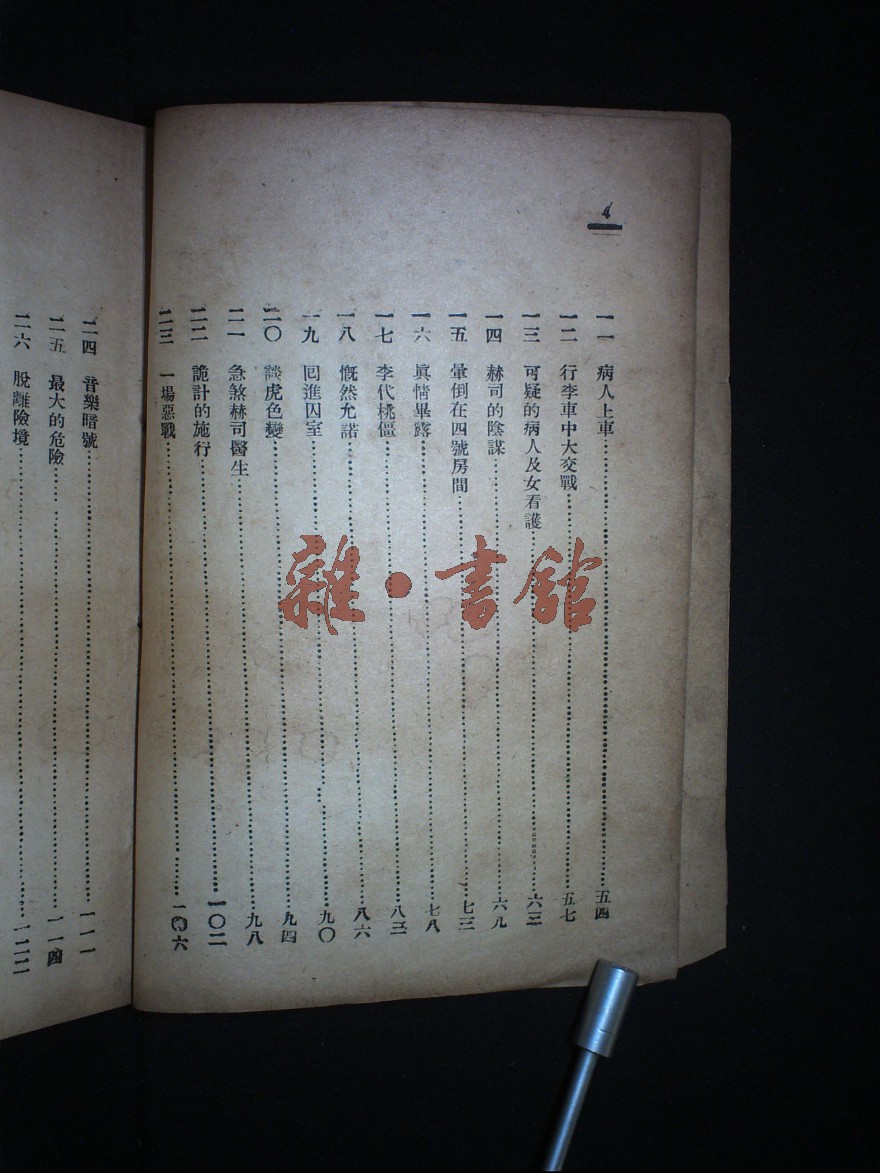 4
一一　病人上車……五四
一二　行李車中大交戰……五七
一三　可疑的病人及女看護……六三
一四　赫司的陰謀……六九
一五　暈倒在四號房間……七三
一六　眞情畢露……七八
一七　李代桃僵……八三
一八　慨然允諾……八六
一九　囘進囚室……九〇
二〇　談虎色變……九四
二一　急煞赫司醫生……九八
二二　詭計的施行……一〇二
二三　一場惡戰……一〇六
二四　音樂暗號……一一一
二五　最大的危險……一一四
二六　脫離險境……一二二
雜·書館